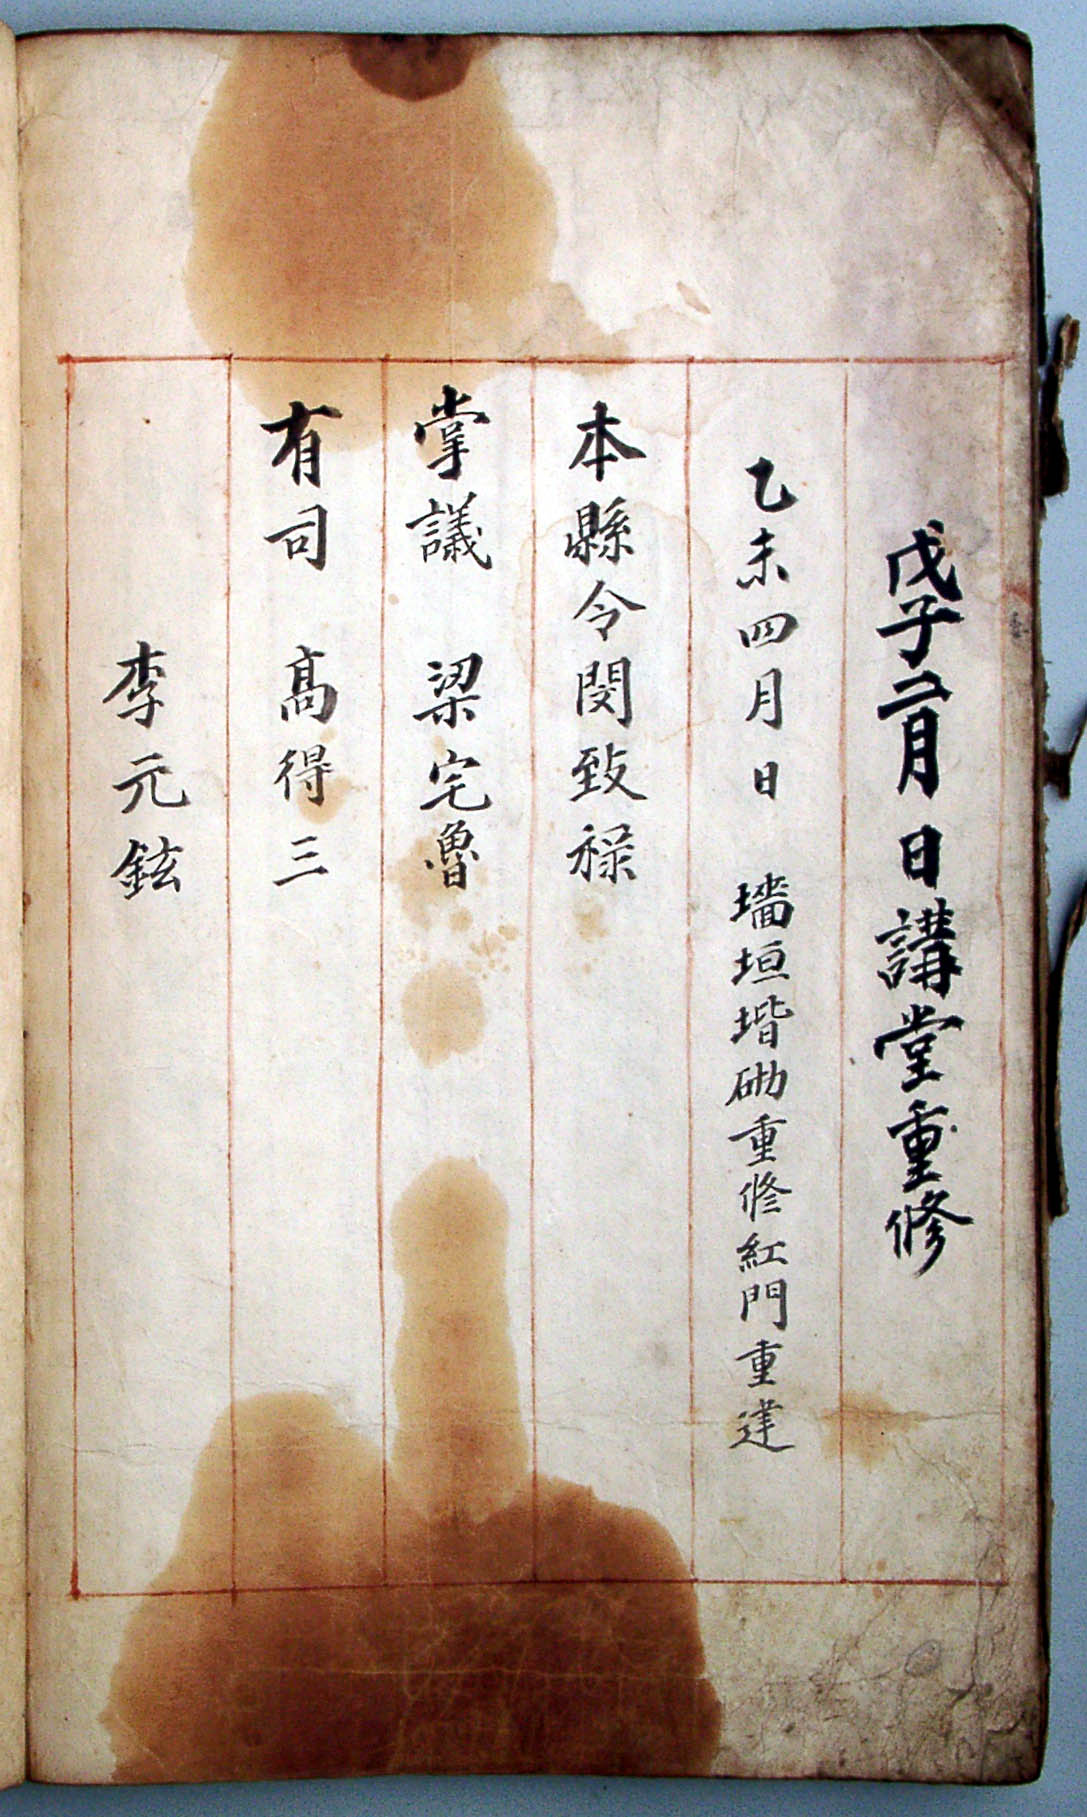 戊子二月 日講堂重修
乙未四月日 墻垣堦砌重修紅門重建
本縣令閔致祿
掌議 梁宅魯
有司 高得三
李元鉉